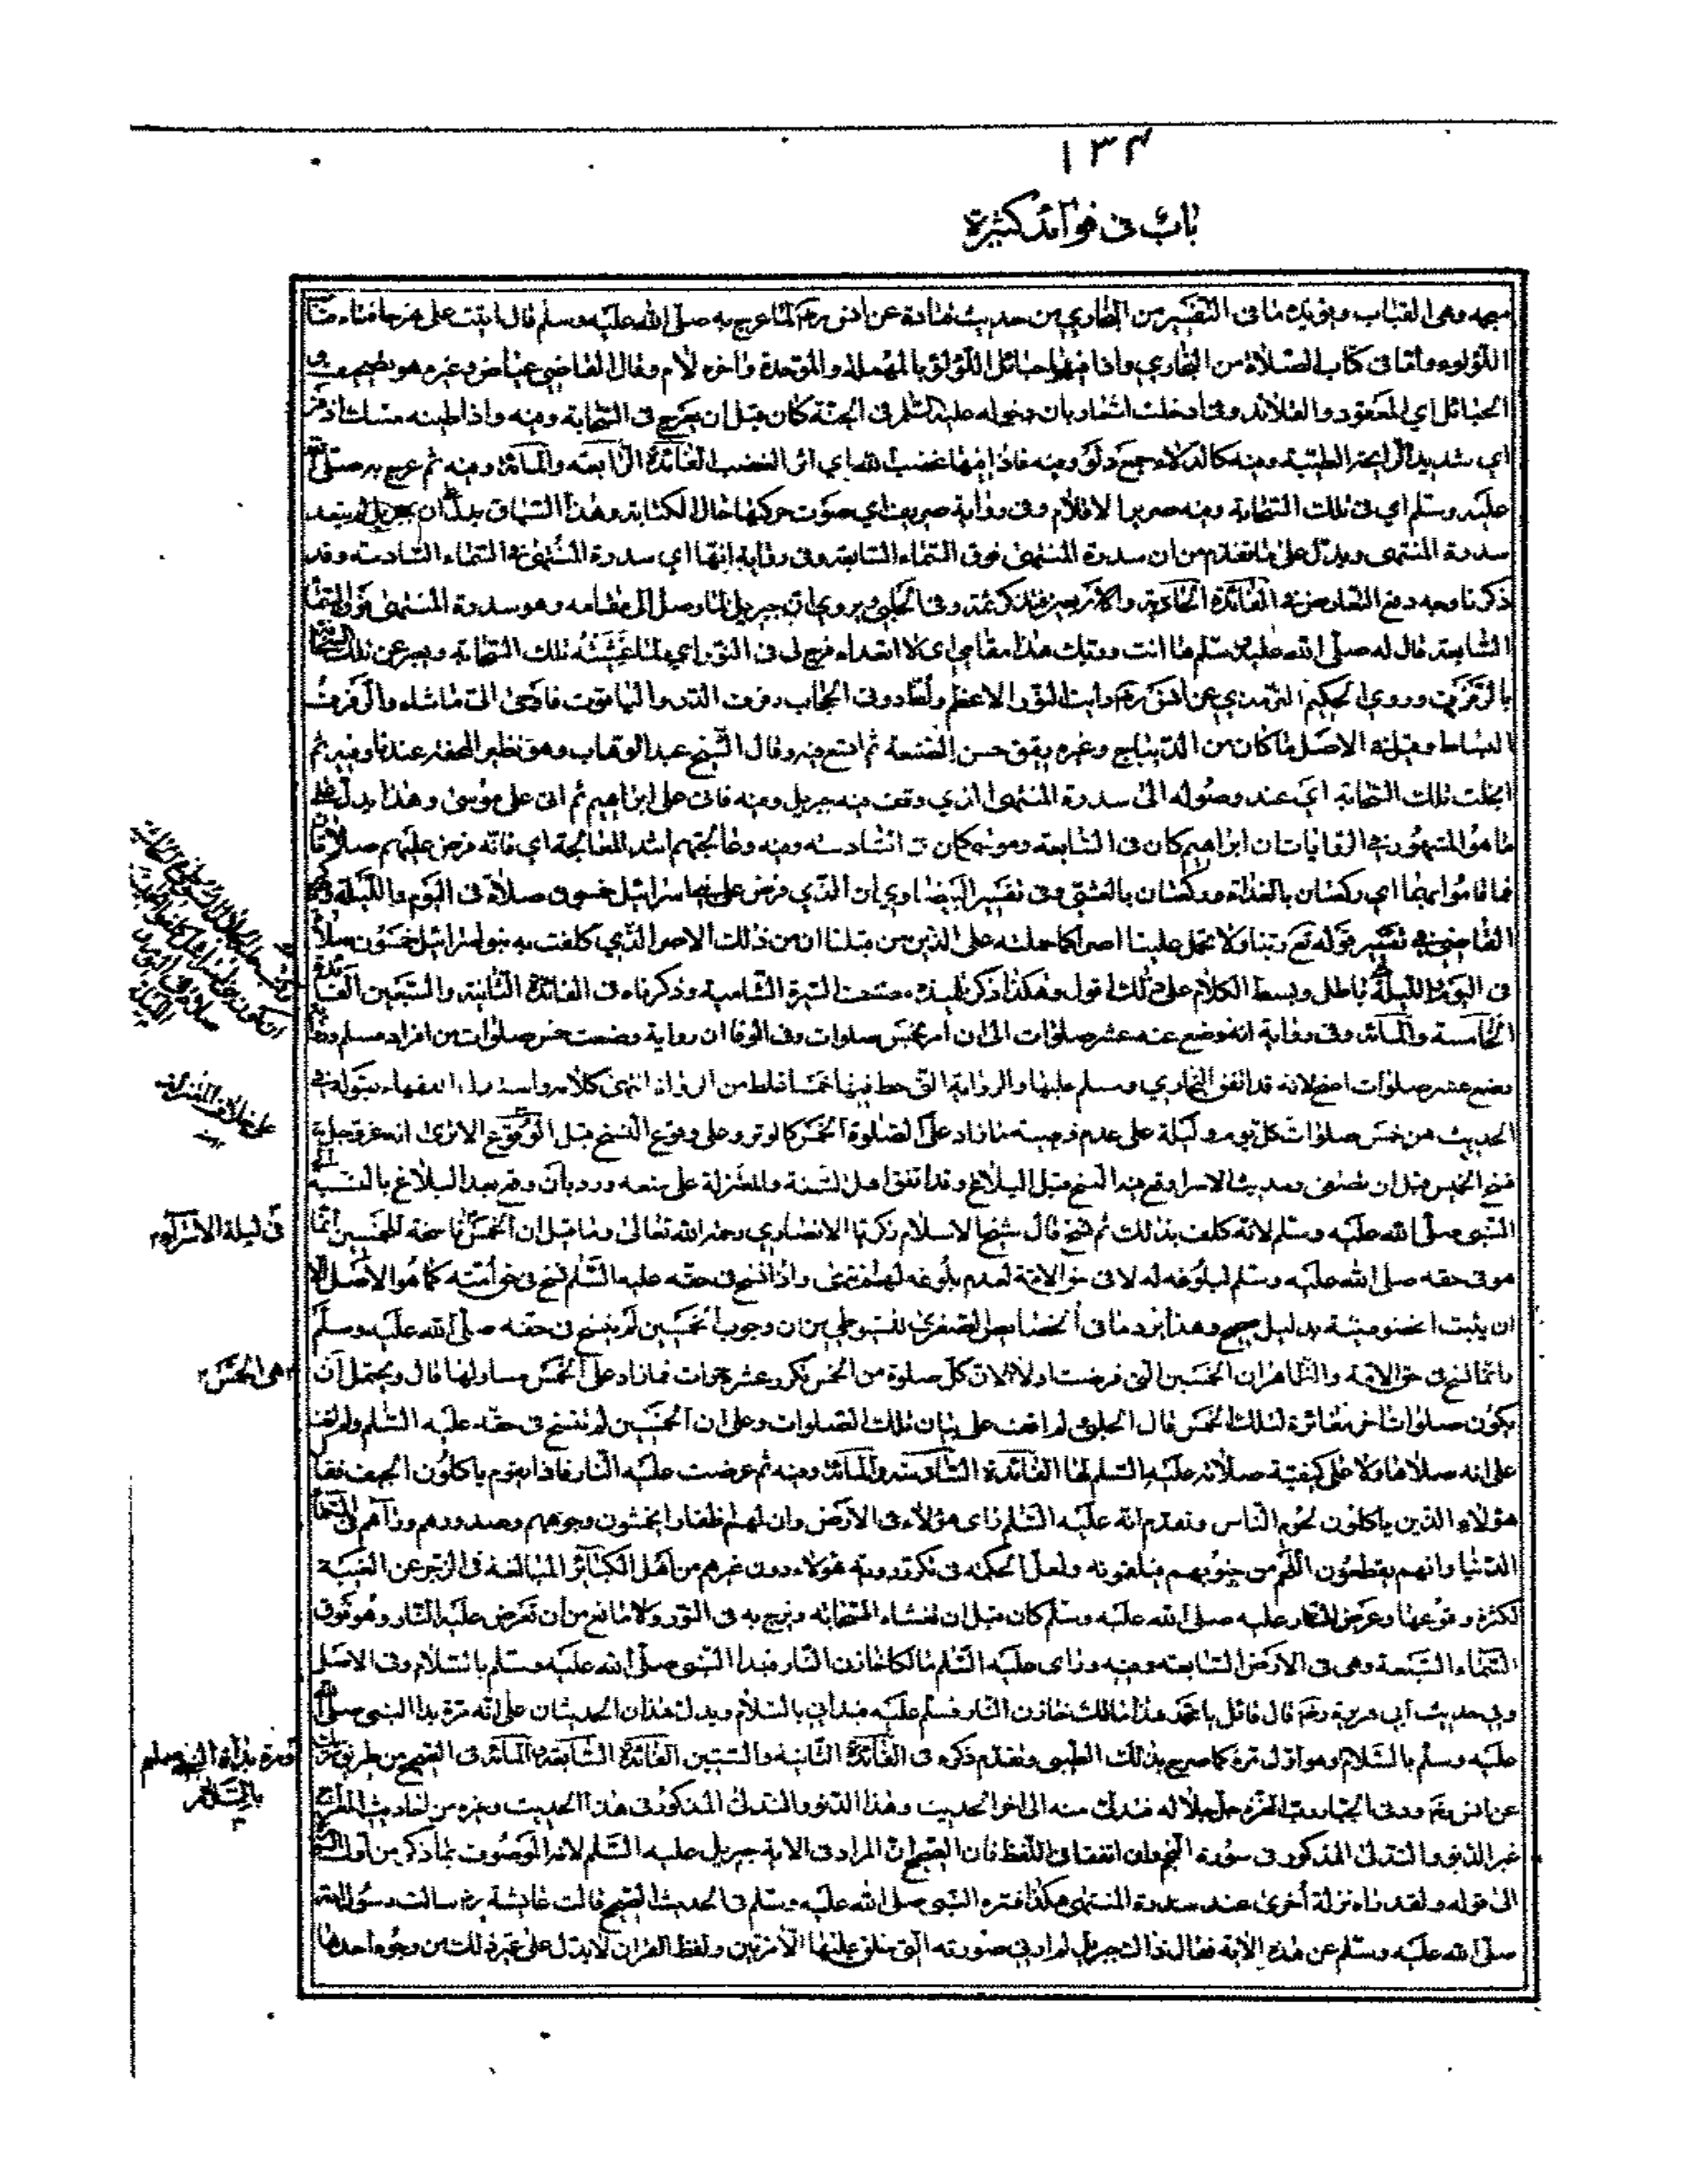 ١٣٤
باب فى فوائد كثيرة
وهى القباب ويؤيده ما فى التفسير من البخاري من حديث قتادة عن انس لما عرج به صلى الله عليه وسلم قال اتيت على نهر حافتاه
اللؤلؤ واما فى كتاب الصلاة من البخاري واذا فيها حبائل اللؤلؤ بالمهملة والموحدة واخره لام وقال القاضي عياض وغيره هو
الحبائل اي العقود والقلائد وفى ادخلت اشعار بان دخوله عليه السلم فى الجنة كان قبل ان يعرج فى السحابة ومنه واذا طينه مسك اذفر
اي شديد الرايحة الطيبة ومنه كالدلاء جمع دلو ومنه فاذا فيها غضب الله اي اثر الغضب الفائدة الرابعة والمائة ومنه ثم عرج به صلى الله
عليه وسلم اي فى تلك السحابة ومنه صرير الاقلام وفى رواية صريف اي صوت حركتها حال الكتابة وهذا السياق يدل ان جبريل لم يتعد
سدرة المنتهى ويدل على ما تقدم من ان سدرة المنتهى فوق السماء السابعة وفى رواية انها اي سدرة المنتهى فى السماء السادسة وقد
ذكرنا وجه دفع التعارض فى الفائدة الحادية والاربعين وفى الحلبي ويروى ان جبريل لما وصل الى مقامه وهو سدرة المنتهى فوق السماء
السابعة قال له صلى الله عليه وسلم ها انت وربك هذا مقامي اي لا اتعداه فزج لى فى النور اي لما غشيته تلك السحابة ويعبر عن تلك السحابة
بالرفرف وروى الحكيم الترمذي عن انس رأيت النور الاعظم ولط دونى الحجاب رفرف الدر والياقوت فاوحى الى ما شاء والرفرف
البساط وقيل فى الاصل ما كان من الديباج وغيره رقيق حسن الصنعة ثم اتسع فيه وقال الشيخ عبد الوهاب وهو نظير المحفة عندنا ومنه ثم
انجلت تلك السحابة اي عند وصوله الى سدرة المنتهى الذي وقف فيه جبريل ومنه فاتى على ابراهيم ثم اتى على موسى وهذا يدل على
ما هو المشهور فى الروايات ان ابراهيم كان فى السابعة وموسى كان فى السادسة ومنه وعالجتهم اشد المعالجة اي فانه فرض عليهم صلاتان
فما قاموا بهما اي ركعتان بالغداة وركعتان بالعشي وفى تفسير البيضاوي ان الذي فرض على بنى اسرائيل خمسون صلاة فى اليوم والليلة
القاضي فى تفسير قوله تع ربنا ولا تحمل علينا اصرا كما حملته على الذين من قبلنا ان من ذلك الاصر الذي كلفت به بنو اسرائيل خمسون صلاة
فى اليوم والليلة باطل وبسط الكلام على ذلك اقول وهكذا ذكر السيرة الشامية وذكرناه فى الفائدة الثانية والتسعين الفائدة
الخامسة والمائة وفى رواية انه وضع عنه عشر صلوات الى ان امر بخمس صلوات وفى الوفا ان رواية وضعت خمس صلوات من افراد مسلم
وضع عشر صلوات اصح لانه قد اتفق البخاري ومسلم عليها والرواية التى حط فيها خمسا غلط من الراوي انتهى كلامه واستدل الفقهاء بقوله فى
الحديث هن خمس صلوات كل يوم وليلة على عدم فرضية ما زاد على الصلوة الخمس كالوتر وعلى وقوع النسخ قبل الوقوع الا ترى انه عز وجل
نسخ الخمسين قبل ان تصلى وحديث الاسراء وقع فيه النسخ قبل البلاغ وقد اتفق اهل السنة والمعتزلة على منعه ورد بان وقع بعد البلاغ بالنسبة
النبى صلى الله عليه وسلم لانه كلف بذلك ثم نسخ قال شيخ الاسلام زكريا الانصاري رحمه الله تعالى وما قيل ان الخمس ناسخة للخمسين انما
هو فى حقه صلى الله عليه وسلم لبلوغه له لا فى حق الامة لعدم بلوغه لهم انتهى واذا نسخ فى حقه عليه السلم نسخ فى حق امته كما هو الاصل الا
ان يثبت الخصوصية بدليل صحيح وهذا يرد ما فى الخصائص الصغرى للسيوطي من ان وجوب الخمسين لم ينسخ فى حقه صلى الله عليه وسلم
وانما نسخ فى حق الامة والظاهر ان الخمسين التى فرضت اولا لان كل صلوة من الخمس تكرر عشر مرات فما زاد على الخمس مساو لها قال ويحتمل ان
يكون صلوات اخر مغايرة لتلك الخمس قال الحلبي لم اقف على بيان تلك الصلوات وعلى ان الخمسين لم تنسخ فى حقه عليه السلم ولم اقف
على انه صلاها ولا على كيفية صلاته عليه السلم لها الفائدة السادسة والمائة ومنه ثم عرضت عليه النار فاذا بقوم ياكلون الجيف فقال
هؤلاء الذين ياكلون لحوم الناس وتقدم انه عليه السلم راى هؤلاء فى الارض وان لهم اظفارا يخمشون وجوههم وصدورهم ورآهم فى السماء
الدنيا وانهم يقطعون اللحم من جنوبهم فيلقمونه ولعل الحكمة فى تكرر رؤية هؤلاء دون غيرهم من اهل الكبائر المبالغة فى الزجر عن الغيبة
لكثرة وقوعها وعرض النار عليه صلى الله عليه وسلم كان قبل ان تغشاه السحابة ويزج به فى النور ولا مانع من ان تعرض عليه النار وهو فوق
السماء السبعة وهى فى الارض السابعة ومنه وراى عليه السلم مالكا خازن النار فبدا النبى صلى الله عليه وسلم بالسلام وفى الاصل
وفى حديث ابى هريرة رضه قال قائل يا محمد هذا مالك خازن النار فسلم عليه فبدانى بالسلام ويدل هذان الحديثان على انه مرة بدا النبى صلى الله
عليه وسلم بالسلام وهو اول مرة كما صرح بذلك الطيبي وتقدم ذكره فى الفائدة الثانية والستين الفائدة السابعة والمائة فى الصحيح من طريق
عن انس رضه ودنى الجبار رب العزة جل جلاله فتدلى منه الى اخر الحديث وهذا الدنو والتدلى المذكور فى هذا الحديث وغيره من احاديث المعراج
غير الدنو والتدلى المذكور فى سورة النجم وان اتفقا فى اللفظ فان الصحيح ان المراد فى الاية جبريل عليه السلم لانه الموصوف بما ذكر من اول السورة
الى قوله ولقد رءاه نزلة أخرى عند سدرة المنتهى هكذا فسره النبى صلى الله عليه وسلم فى الحديث الصحيح قالت عائشة رض سالت رسول الله
صلى الله عليه وسلم عن هذه الاية فقال ذاك جبريل لم اره فى صورته التى خلق عليها الا مرتين ولفظ القرآن لا يدل على غير ذلك من وجوه احدها
فى ليلة الاسراء
هى الخمس
ومرة بدأه النبى صلعم
بالسلام